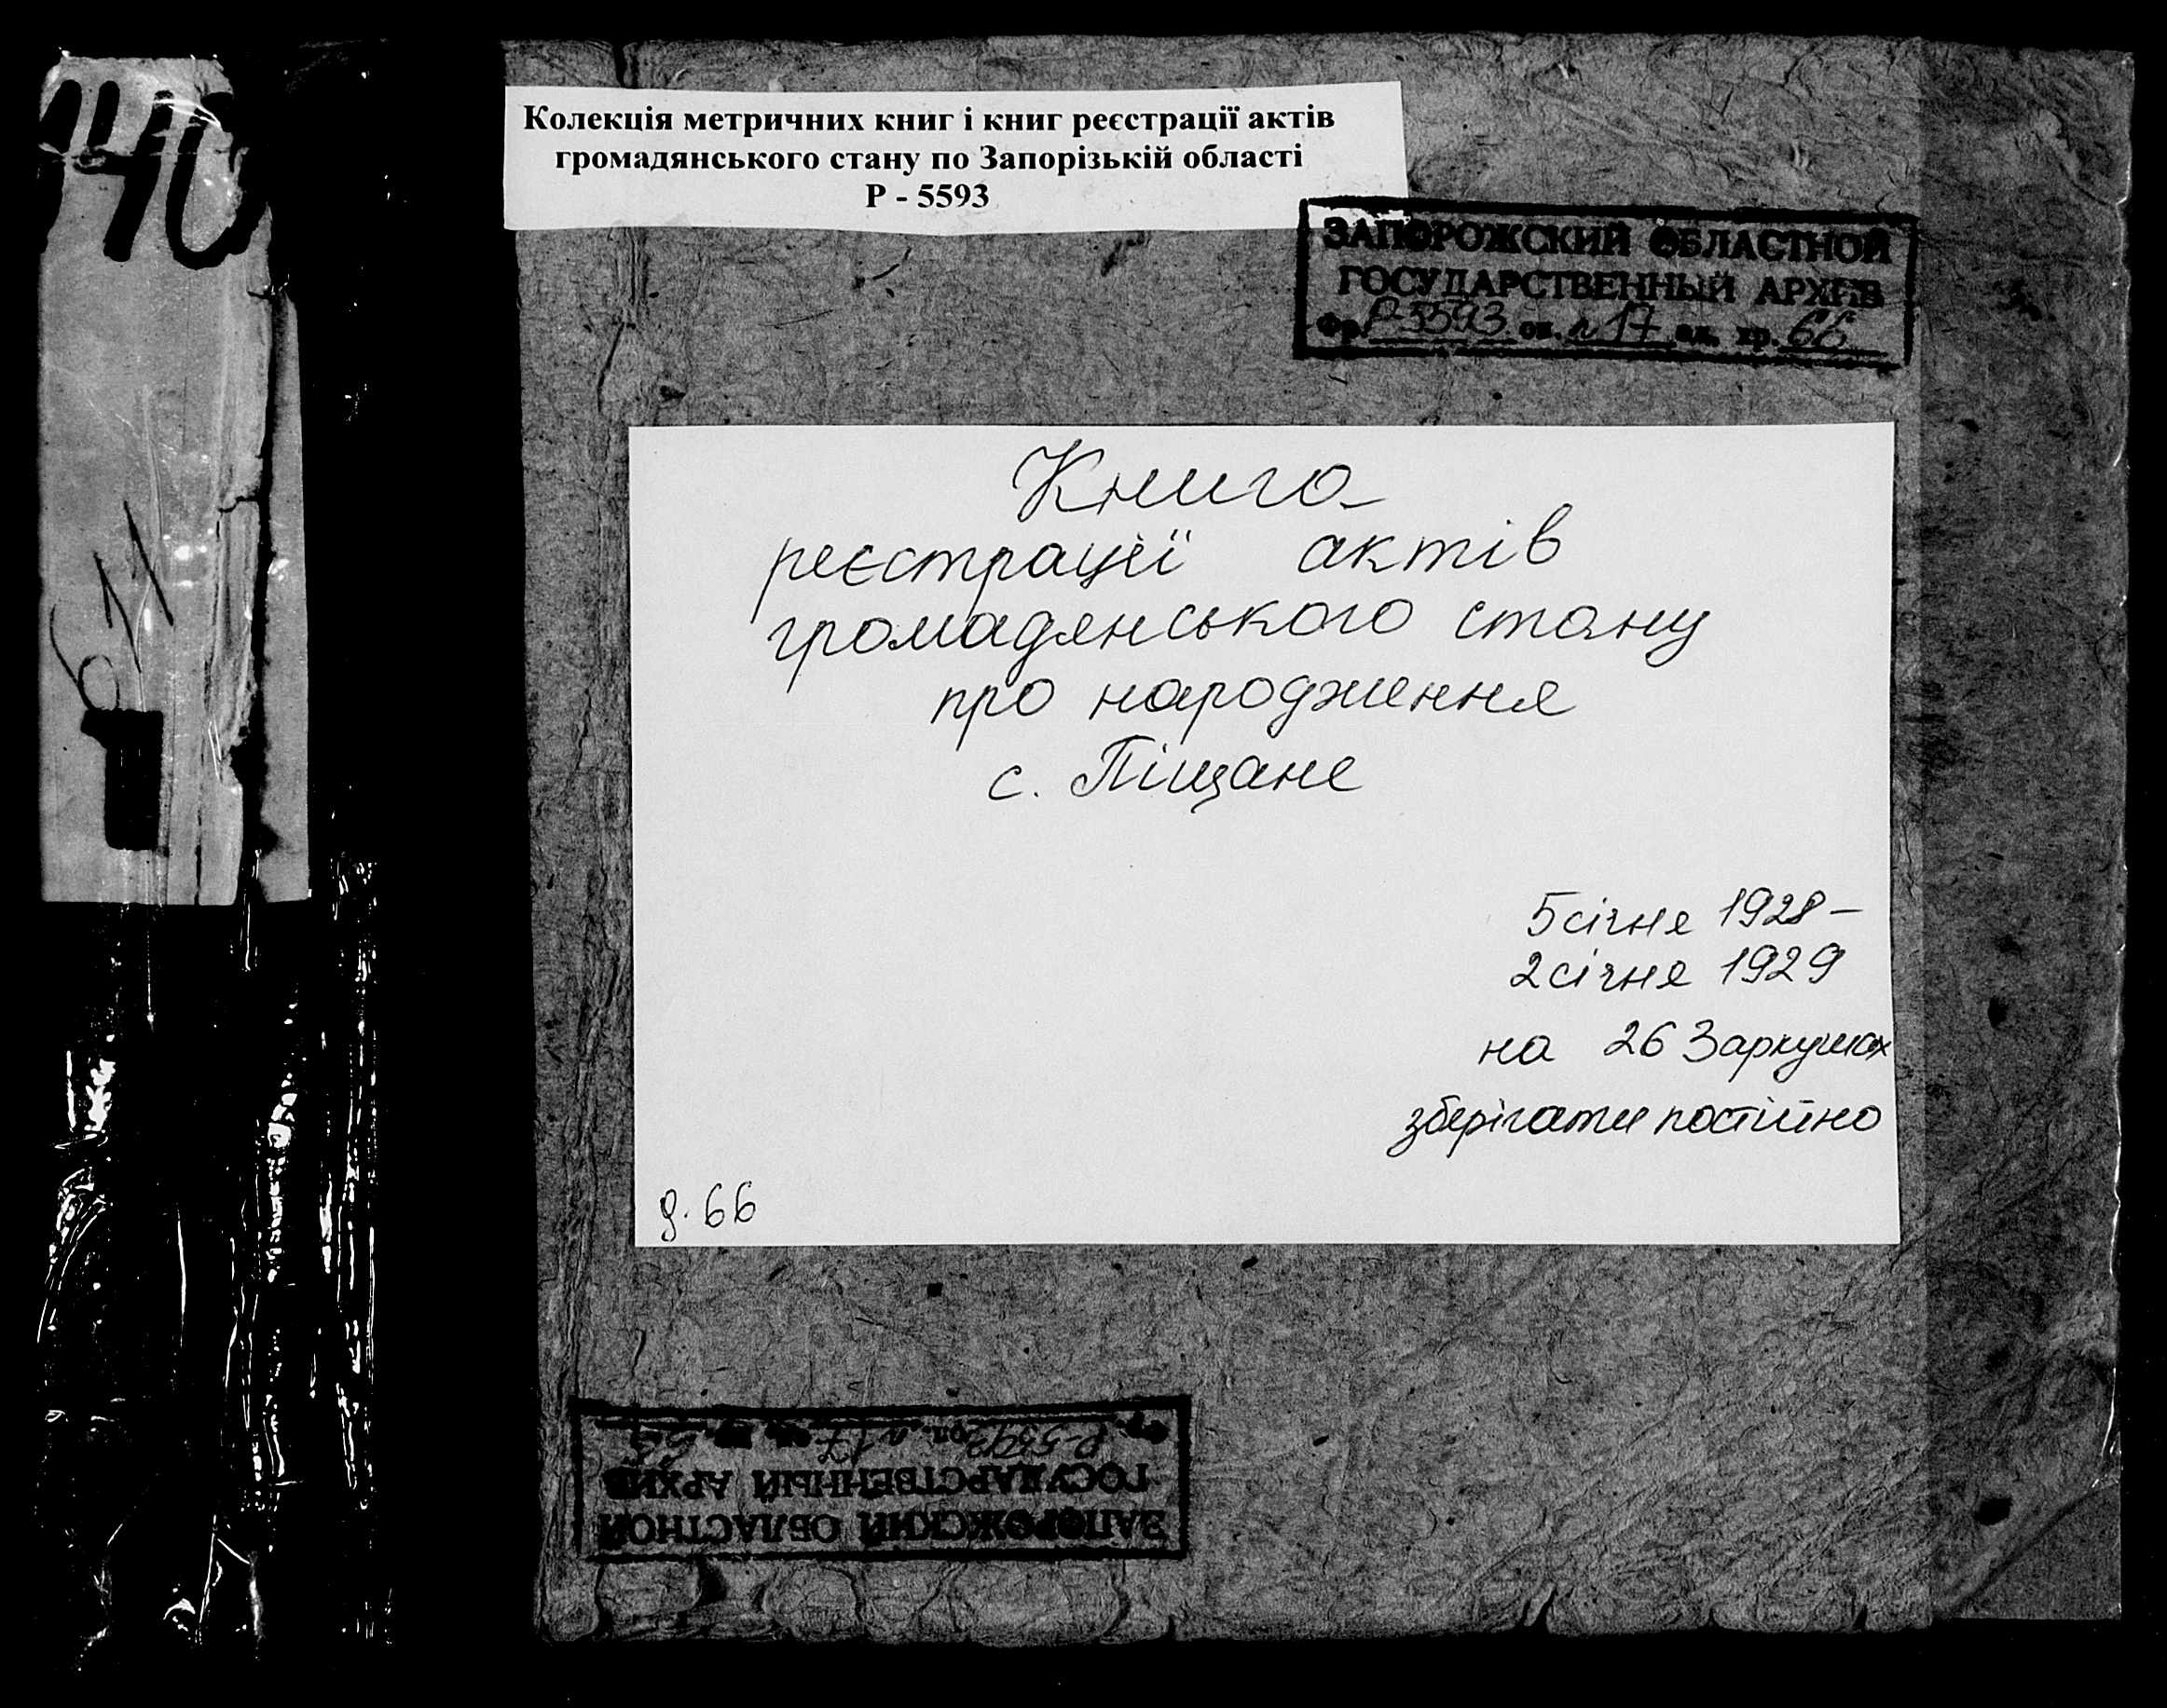 440
611
Колекція метричних книг і книг реєстрації актів
громадянського стану по Запорізькій області
Р - 5593
ЗАПОРОЖСКИЙ ОБЛАСТНОЙ
ГОСУДАРСТВЕННЫЙ АРХИВ
Фр. Р-5593 оп. л 17 ед. хр. 66
Книга
реєстрації актів
громадянського стану
про народження
с. Піщане
5 січня 1928 –
2 січня 1929
на 263 аркушах
зберігати постійно
д. 66
ЗАПОРОЖСКИЙ ОБЛАСТНОЙ
ГОСУДАРСТВЕННЫЙ АРХИВ
Р-5593 оп. 17